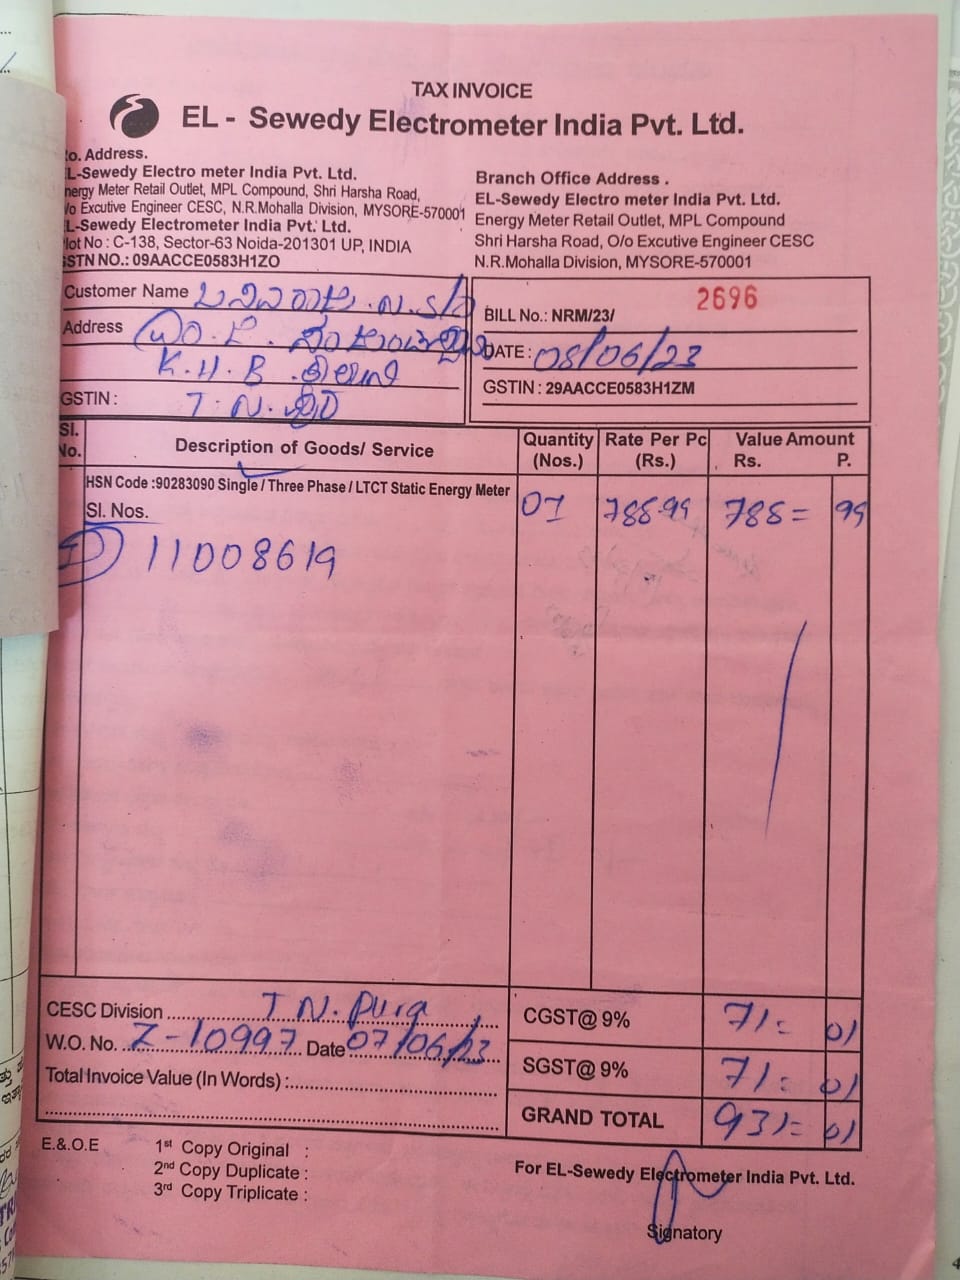 TAX INVOICE
EL - Sewedy Electrometer India Pvt. Ltd.
o. Address.
L-Sewedy Electro meter India Pvt. Ltd.
nergy Meter Retail Outlet, MPL Compound, Shri Harsha Road,
/o Excutive Engineer CESC, N.R.Mohalla Division, MYSORE-570001
L-Sewedy Electrometer India Pvt. Ltd.
lot No : C-138, Sector-63 Noida-201301 UP, INDIA
STN NO.: 09AACCE0583H1ZO
Branch Office Address .
EL-Sewedy Electro meter India Pvt. Ltd.
Energy Meter Retail Outlet, MPL Compound
Shri Harsha Road, O/o Excutive Engineer CESC
N.R.Mohalla Division, MYSORE-570001
Customer Name
Address
K.H.B.
GSTIN :
BILL No.: NRM/23/ 2696
DATE : 08/06/23
GSTIN : 29AACCE0583H1ZM
Sl. No. Description of Goods/ Service Quantity (Nos.) Rate Per Pc (Rs.) Value Amount Rs. P.
HSN Code :90283090 Single / Three Phase / LTCT Static Energy Meter 01 788.99 788= 99
Sl. Nos.
11008619
CESC Division T N. Pura
W.O. No. Z-10997 Date 07/06/23
Total Invoice Value (In Words) :
CGST@ 9% 71= 01
SGST@ 9% 71= 01
GRAND TOTAL 931= 01
E.&.O.E
1st Copy Original :
2nd Copy Duplicate :
3rd Copy Triplicate :
For EL-Sewedy Electrometer India Pvt. Ltd.
Signatory